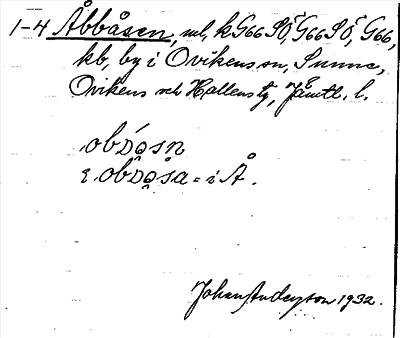 1-4 Åbbåsen, ml, k G66 SÖ, G66 SÖ, G66,
kb, by i Ovikens sn, Sunne,
Ovikens och Hallens tg, Jämtl. l.
obdåsn
i obdåsa = i Å.
Johan Anderson 1932.